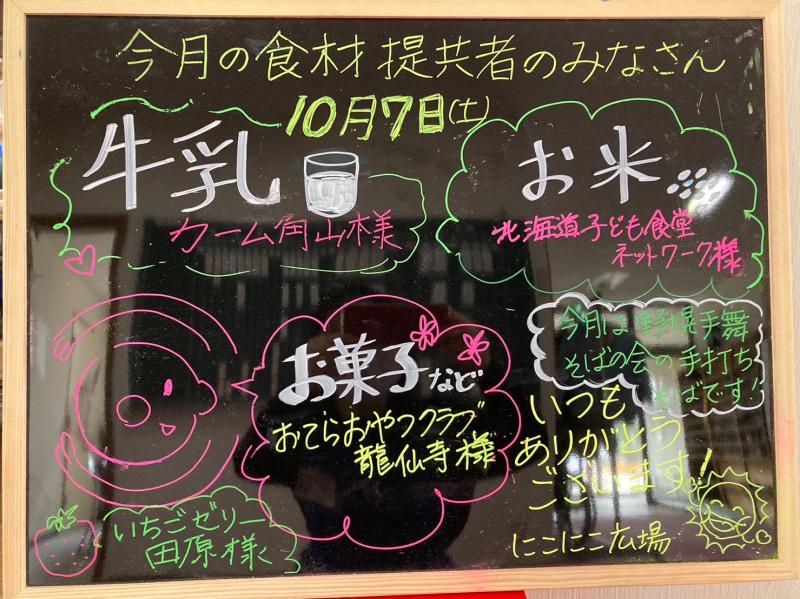 今月の食材提供者のみなさん
10月7日(土)
牛乳
カーム角山様
お米
北海道子ども食堂
ネットワーク様
お菓子など
おてらおやつクラブ
龍仙寺様
今月は野幌手舞
そばの会の手打ち
そばです!
いつも
ありがとう
ございます!
いちごゼリー
田原様
にこにこ広場